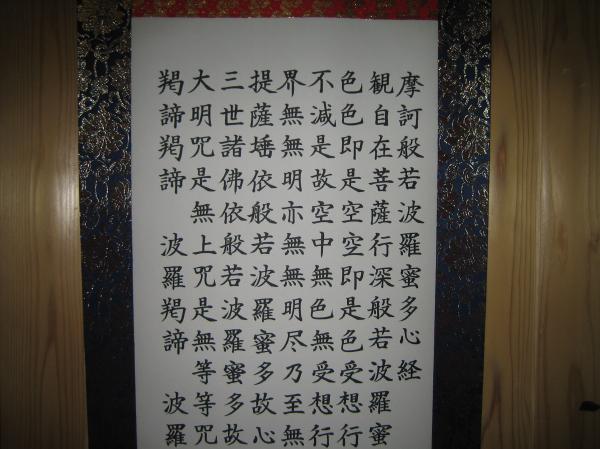 摩訶般若波羅蜜多心経
観自在菩薩行深般若波羅蜜
色色即是空空即是色受想行
不減是故空中無色無受想行
界無無明亦無無明尽乃至無
提薩埵依般若波羅蜜多故心
三世諸佛依般若波羅蜜多故
大明咒是無上咒是無等等咒
羯諦羯諦 波羅羯諦 波羅